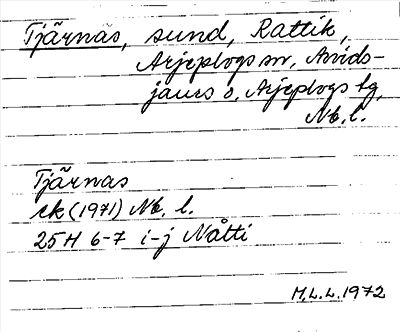 Tjärnas, sund, Rattik,
Arjeplogs sn, Arvids-
jaurs o. Arjeplogs tg,
Nb. l.
Tjärnas
ek (1971) Nb. l.
25H 6-7 i-j Nåtti
M.L.L. 1972